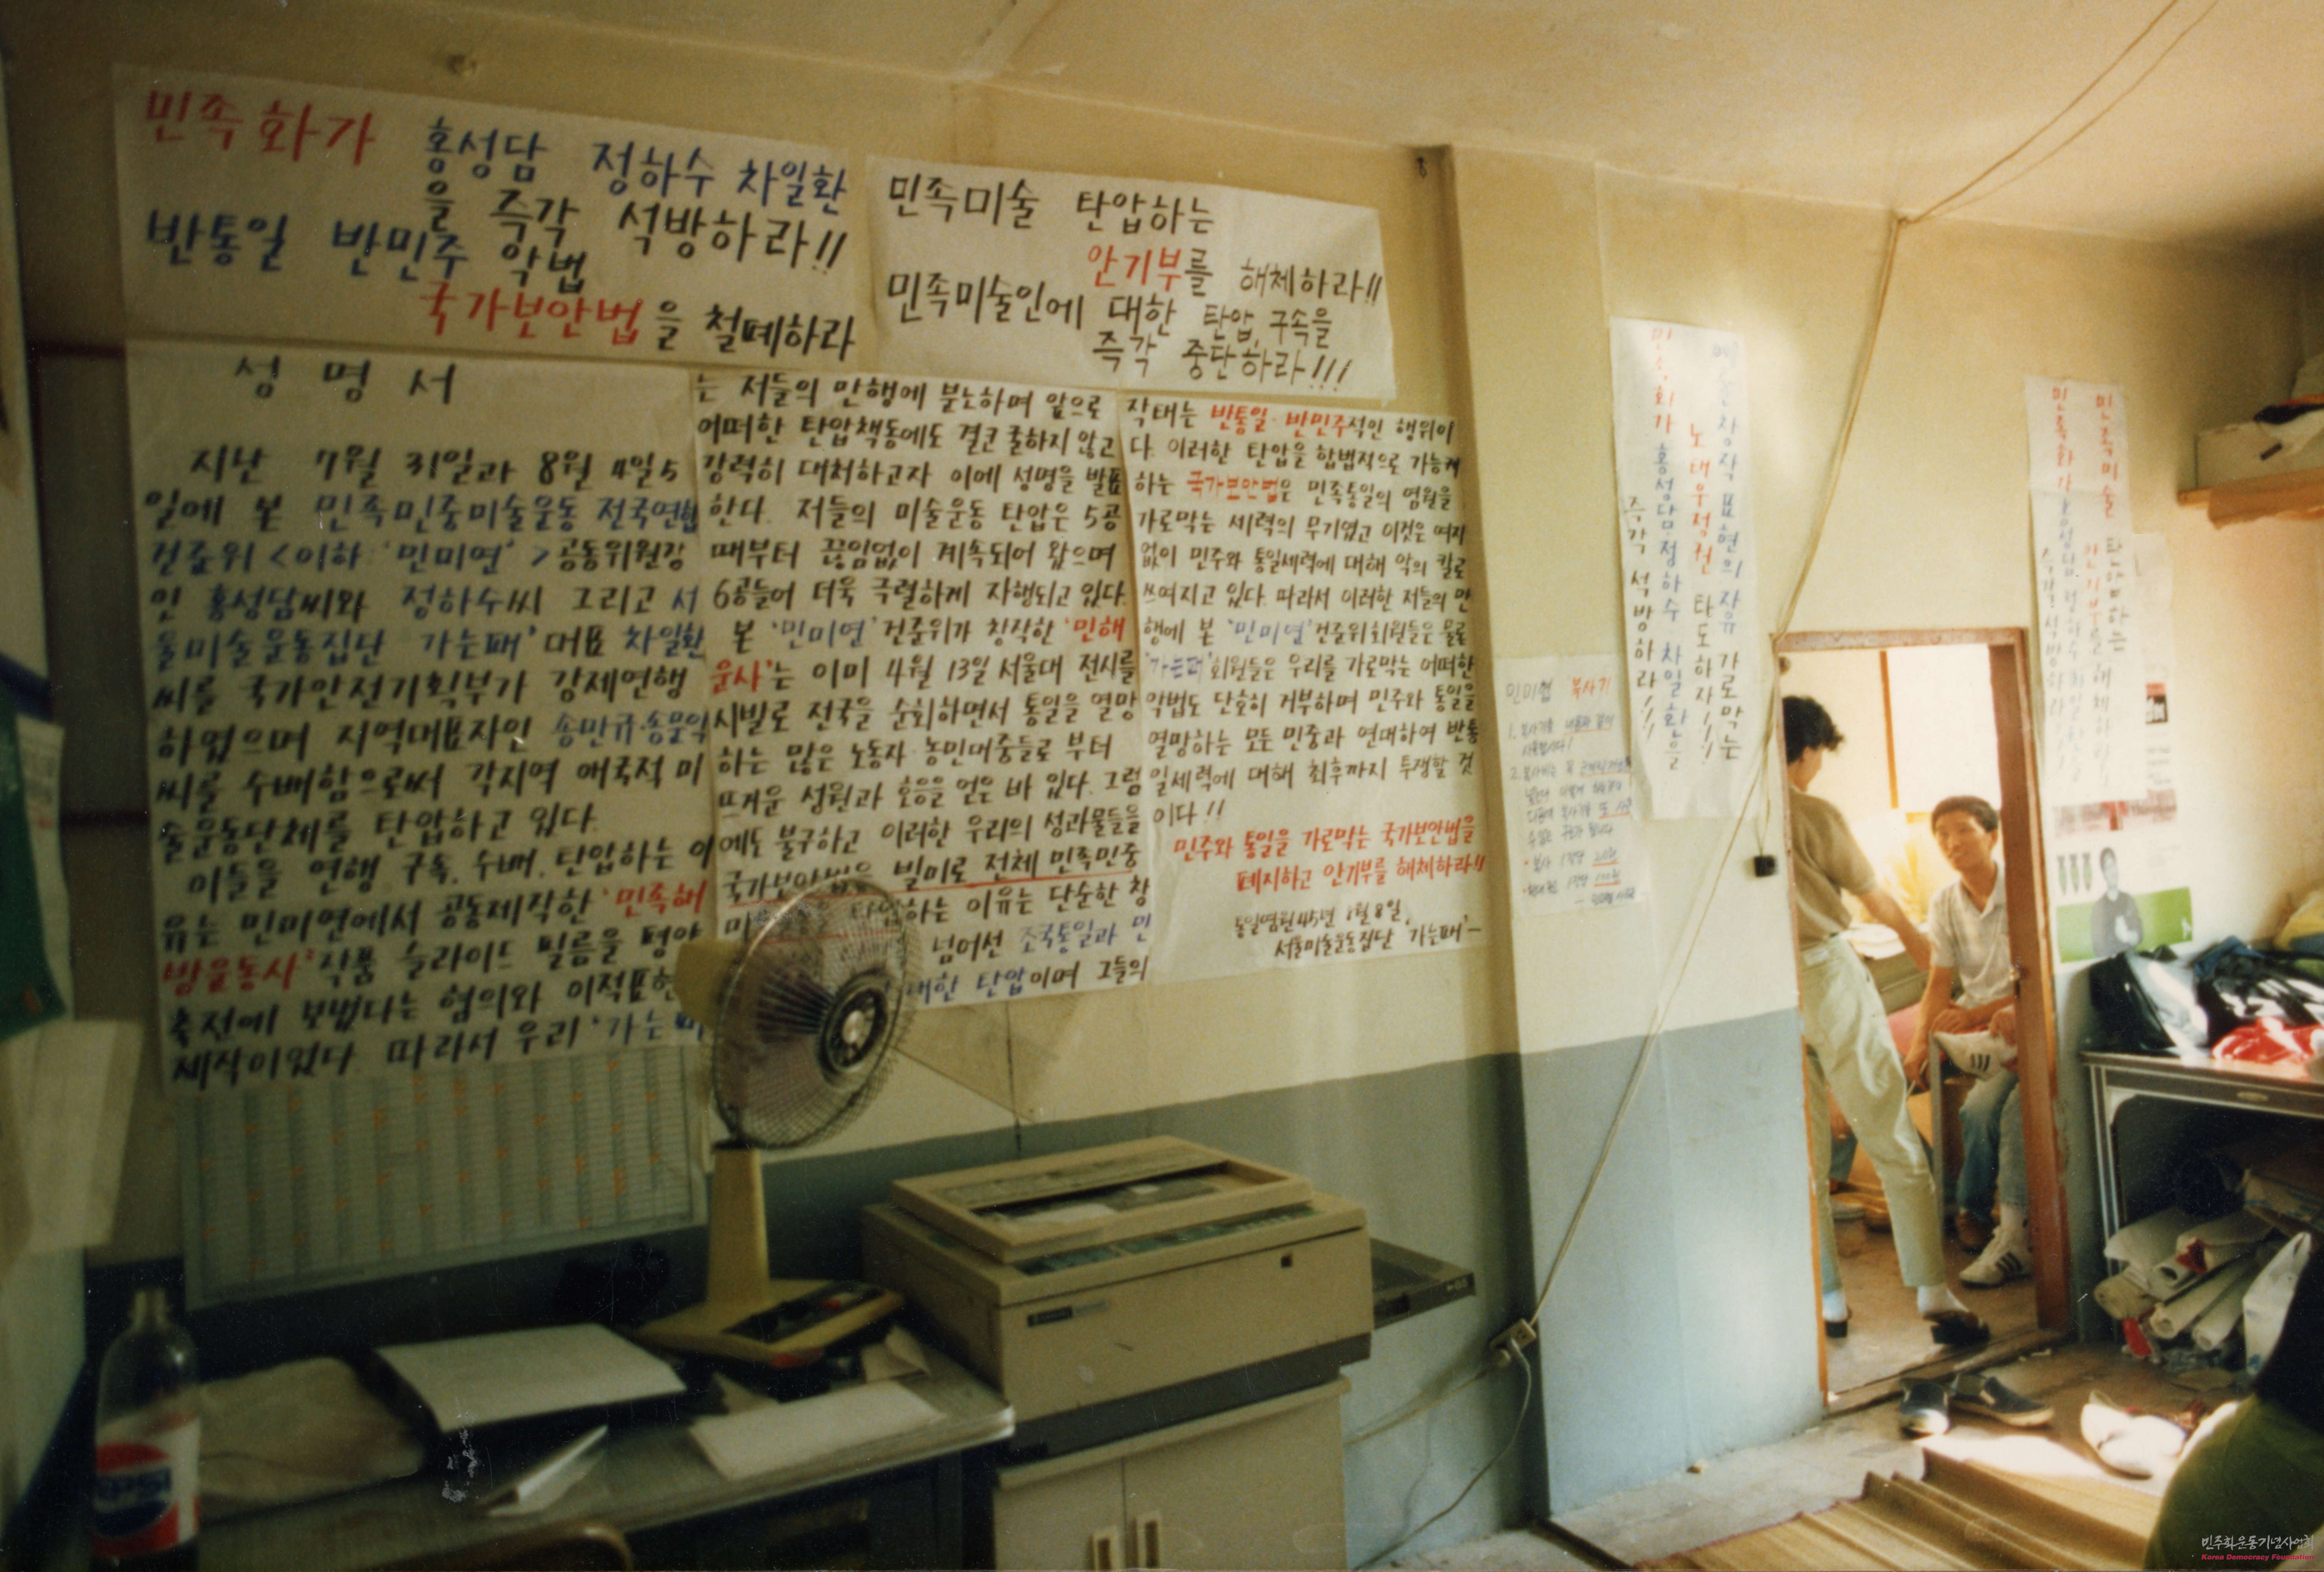 민족화가 홍성담 정하수 차일환
을 즉각 석방하라!!
반통일 반민주 악법
국가보안법을 철폐하라
민족미술 탄압하는
안기부를 해체하라!!
민족미술인에 대한 탄압, 구속을
즉각 중단하라!!!
성명서
지난 7월 31일과 8월 4일5
일에 본 민족민중미술운동 전국연합
건준위<이하 '민미연'>공동위원장
인 홍성담씨와 정하수씨 그리고 서
울미술운동집단 가는패' 대표 차일환
씨를 국가안전기획부가 강제연행
하였으며 지역대표자인 송만규·송문익
씨를 수배함으로써 각지역 애국적 미
술운동단체를 탄압하고 있다.
이들을 연행, 구속, 수배, 탄압하는 이
유는 민미연에서 공동제작한 '민족해
방운동사' 작품 슬라이드 필름을 평양
축전에 보냈다는 혐의와 이적표현
제작이었다. 따라서 우리 '가는패
는 저들의 만행에 분노하며 앞으로
어떠한 탄압책동에도 결코 굴하지 않고
강력히 대처하고자 이에 성명을 발표
한다. 저들의 미술운동 탄압은 5공
때부터 끊임없이 계속되어 왔으며
6공들어 더욱 극렬하게 자행되고 있다.
본 '민미연' 건준위가 창작한 '민해
운사'는 이미 4월 13일 서울대 전시를
시발로 전국을 순회하면서 통일을 열망
하는 많은 노동자·농민대중들로 부터
뜨거운 성원과 호응을 얻은 바 있다. 그럼
에도 불구하고 이러한 우리의 성과물들을
국가보안법을 빌미로 전체 민족민중
하는 이유는 단순한 창
넘어선 조국통일과 민
대한 탄압이며 그들의
작태는 반통일·반민주적인 행위이
다. 이러한 탄압을 합법적으로 가능케
하는 국가보안법은 민족통일의 염원을
가로막는 세력의 무기였고 이것은 여지
없이 민주와 통일세력에 대해 악의 칼로
쓰여지고 있다. 따라서 이러한 저들의 만
행에 본 '민미연' 건준위회원들은 물론
'가는패' 회원들은 우리를 가로막는 어떠한
악법도 단호히 거부하며 민주와 통일을
열망하는 모든 민중과 연대하여 반통
일세력에 대해 최후까지 투쟁할 것
이다!!
민주와 통일을 가로막는 국가보안법을
폐지하고 안기부를 해체하라!!
통일염원45년 8월 8일,
서울미술운동집단 '가는패'
민미협 '복사기'
창작 표현의 자유 가로막는
노태우정권 타도하자!!!
민족화가 홍성담·정하수·차일환을
즉각 석방하라!!!
민족미술 탄압하는
안기부를 해체하라!!
민족화가 홍성담 정하수
PEPSI
민주화운동기념사업회
Korea Democracy Foundation